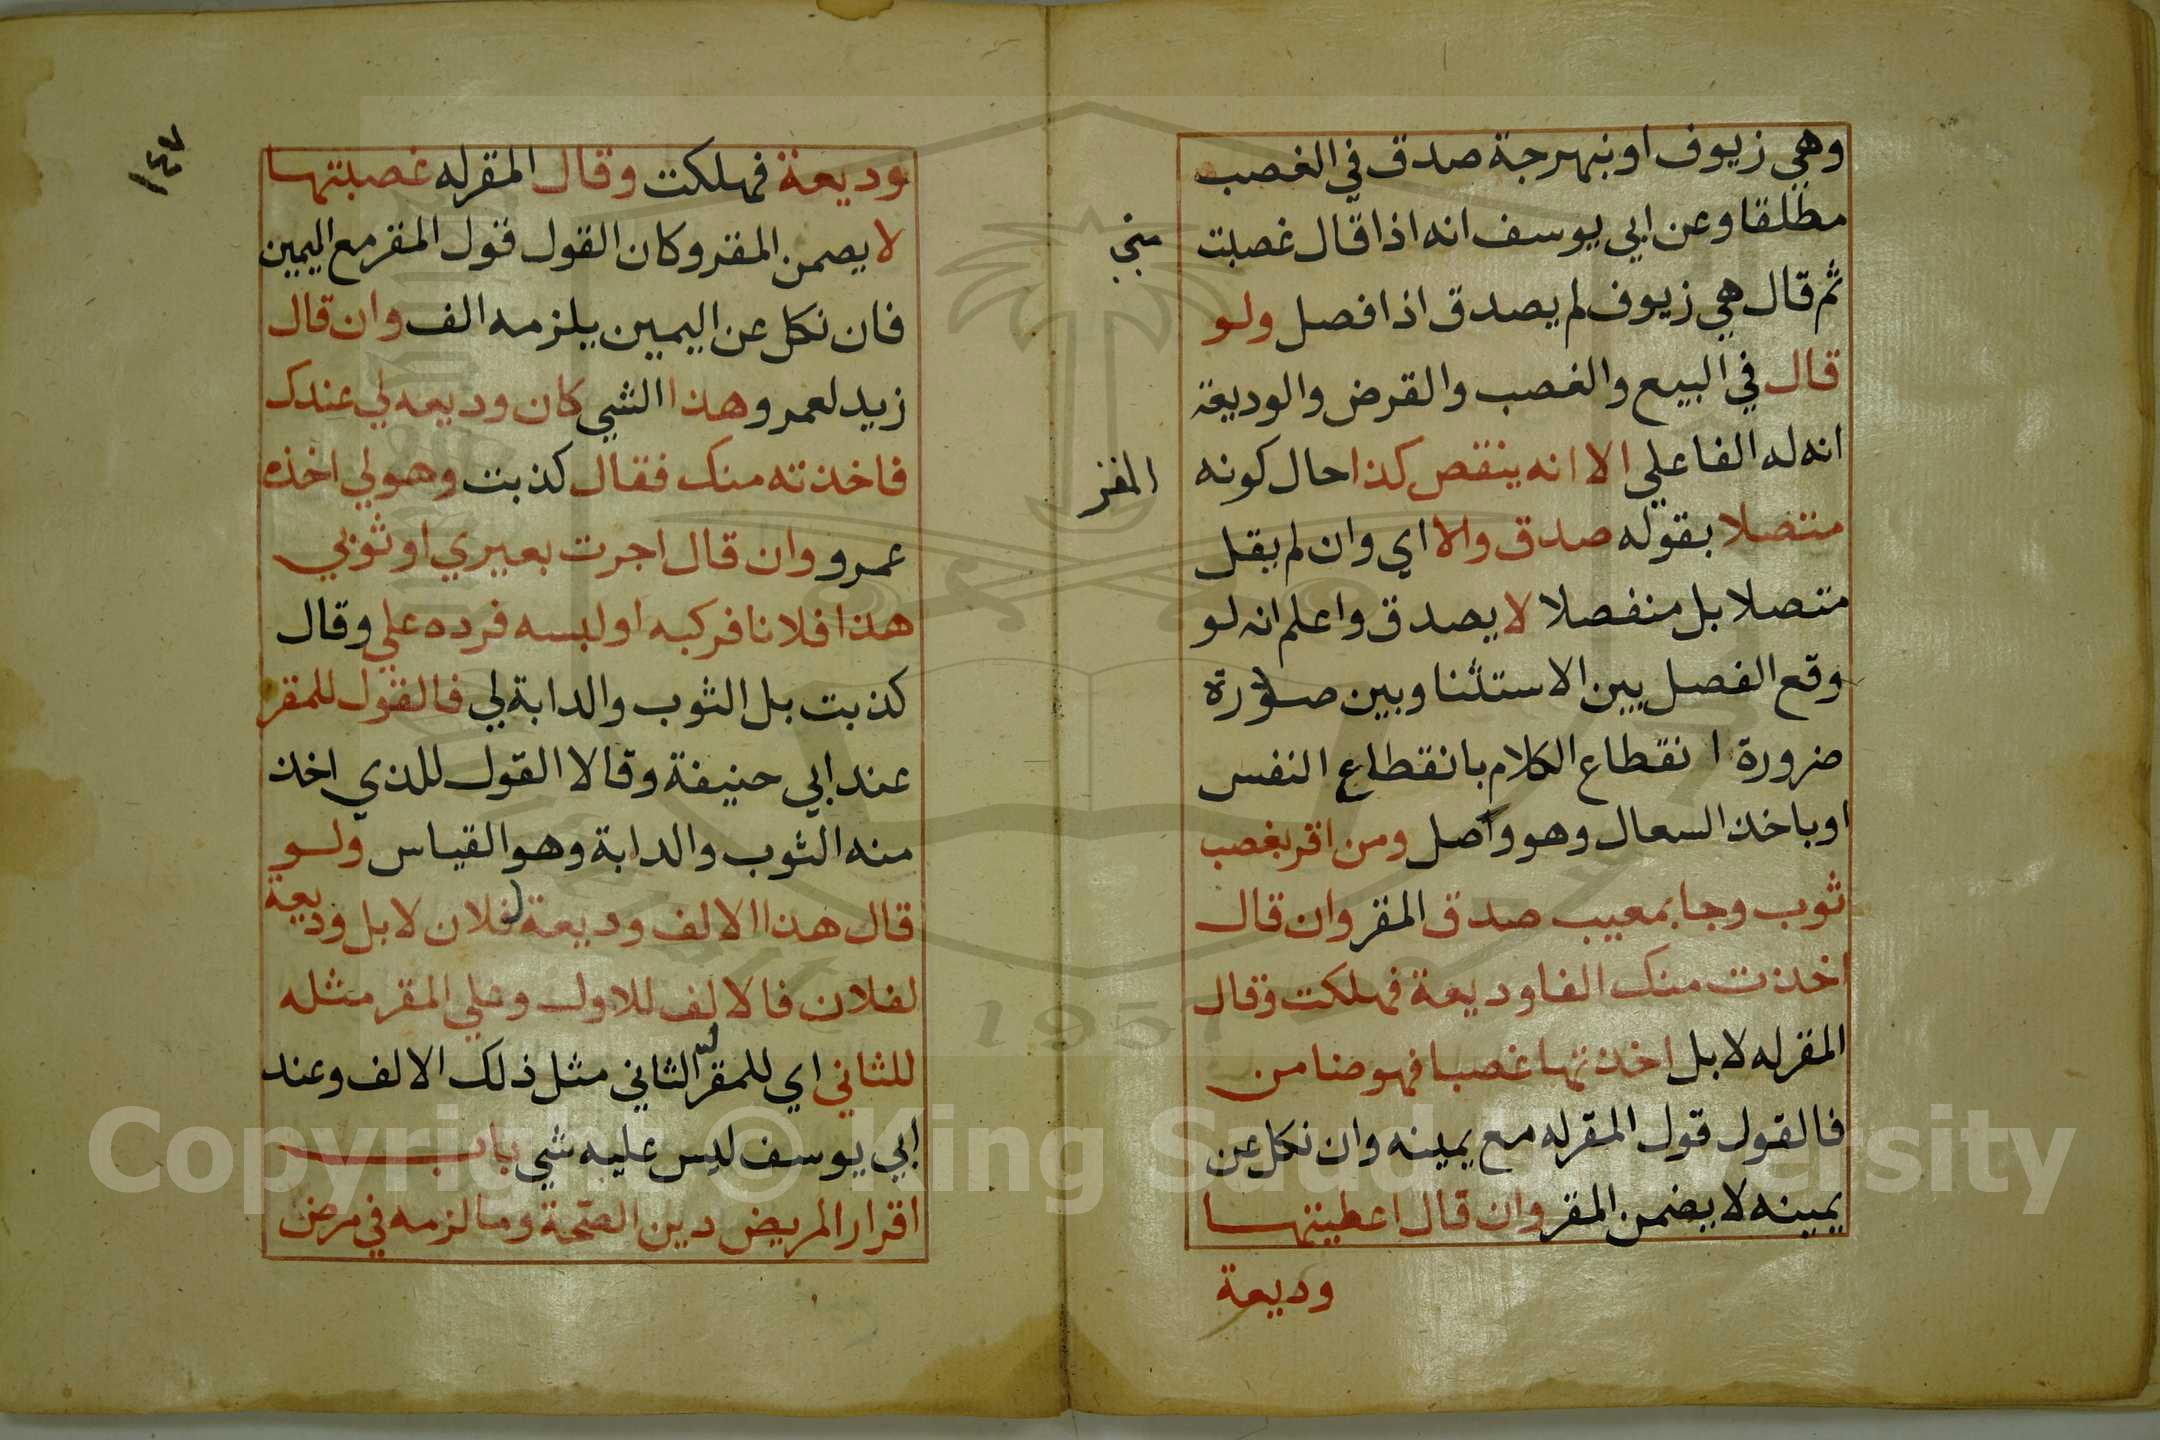 وهي زيوف او نبهرجة صدق في الغصب
مطلقا وعن ابي يوسف انه اذا قال غصبت
مني
ثم قال هي زيوف لم يصدق اذا فصل ولو
قال في البيع والغصب والقرض والوديعة
انه له الفا علي الا انه ينقص كذا حال كونه
المقر
متصلا بقوله صدق والا اي وان لم يقل
متصلا بل منفصلا لا يصدق واعلم انه لو
وقع الفصل بين الاستثنا وبين صورة
ضرورة انقطاع الكلام بانقطاع النفس
او باخذ السعال وهو واصل ومن اقر بغصب
ثوب وجا بمعيب صدق المقر وان قال
اخذت منك الفا وديعة فهلكت وقال
المقر له لا بل اخذتها غصبا فهو ضامن
فالقول قول المقر له مع يمينه وان نكل عن
يمينه لا يضمن المقر وان قال اعطيتنها
وديعة
١٤٧
وديعة فهلكت وقال المقر له غصبتنها
لا يضمن المقر وكان القول قول المقر مع اليمين
فان نكل عن اليمين يلزمه الف وان قال
زيد لعمرو هذا الشي كان وديعه لي عندك
فاخذته منك فقال كذبت وهو لي اخذه
عمرو وان قال اجرت بعيري او ثوبي
هذا فلانا فركبه او لبسه فرده علي وقال
كذبت بل الثوب والدابة لي فالقول للمقر
عند ابي حنيفة وقالا القول للذي اخذ
منه الثوب والدابة وهو القياس ولو
قال هذا الالف وديعة لفلان لا بل وديعة
لفلان فالالف للاول وعلي المقر مثله
للثاني اي للمقر له الثاني مثل ذلك الالف وعند
ابي يوسف ليس عليه شي باب
اقرار المريض دين الصحة وما لزمه في مرض
1957
Copyright © King Saud University